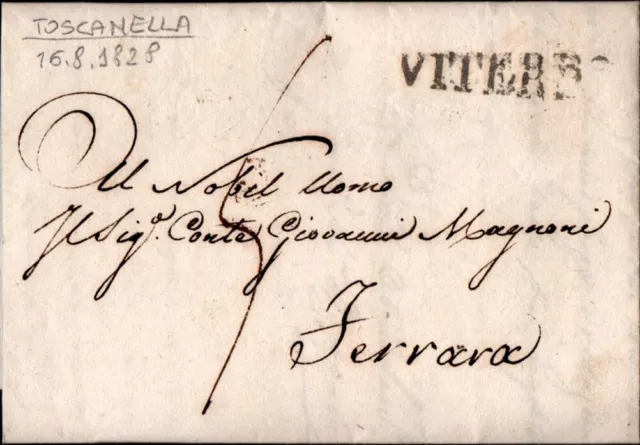 TOSCANELLA
16.8.1828
VITERBO
Al Nobil Uomo
Il Sigr. Conte Giovanni Magnoni
Ferrara